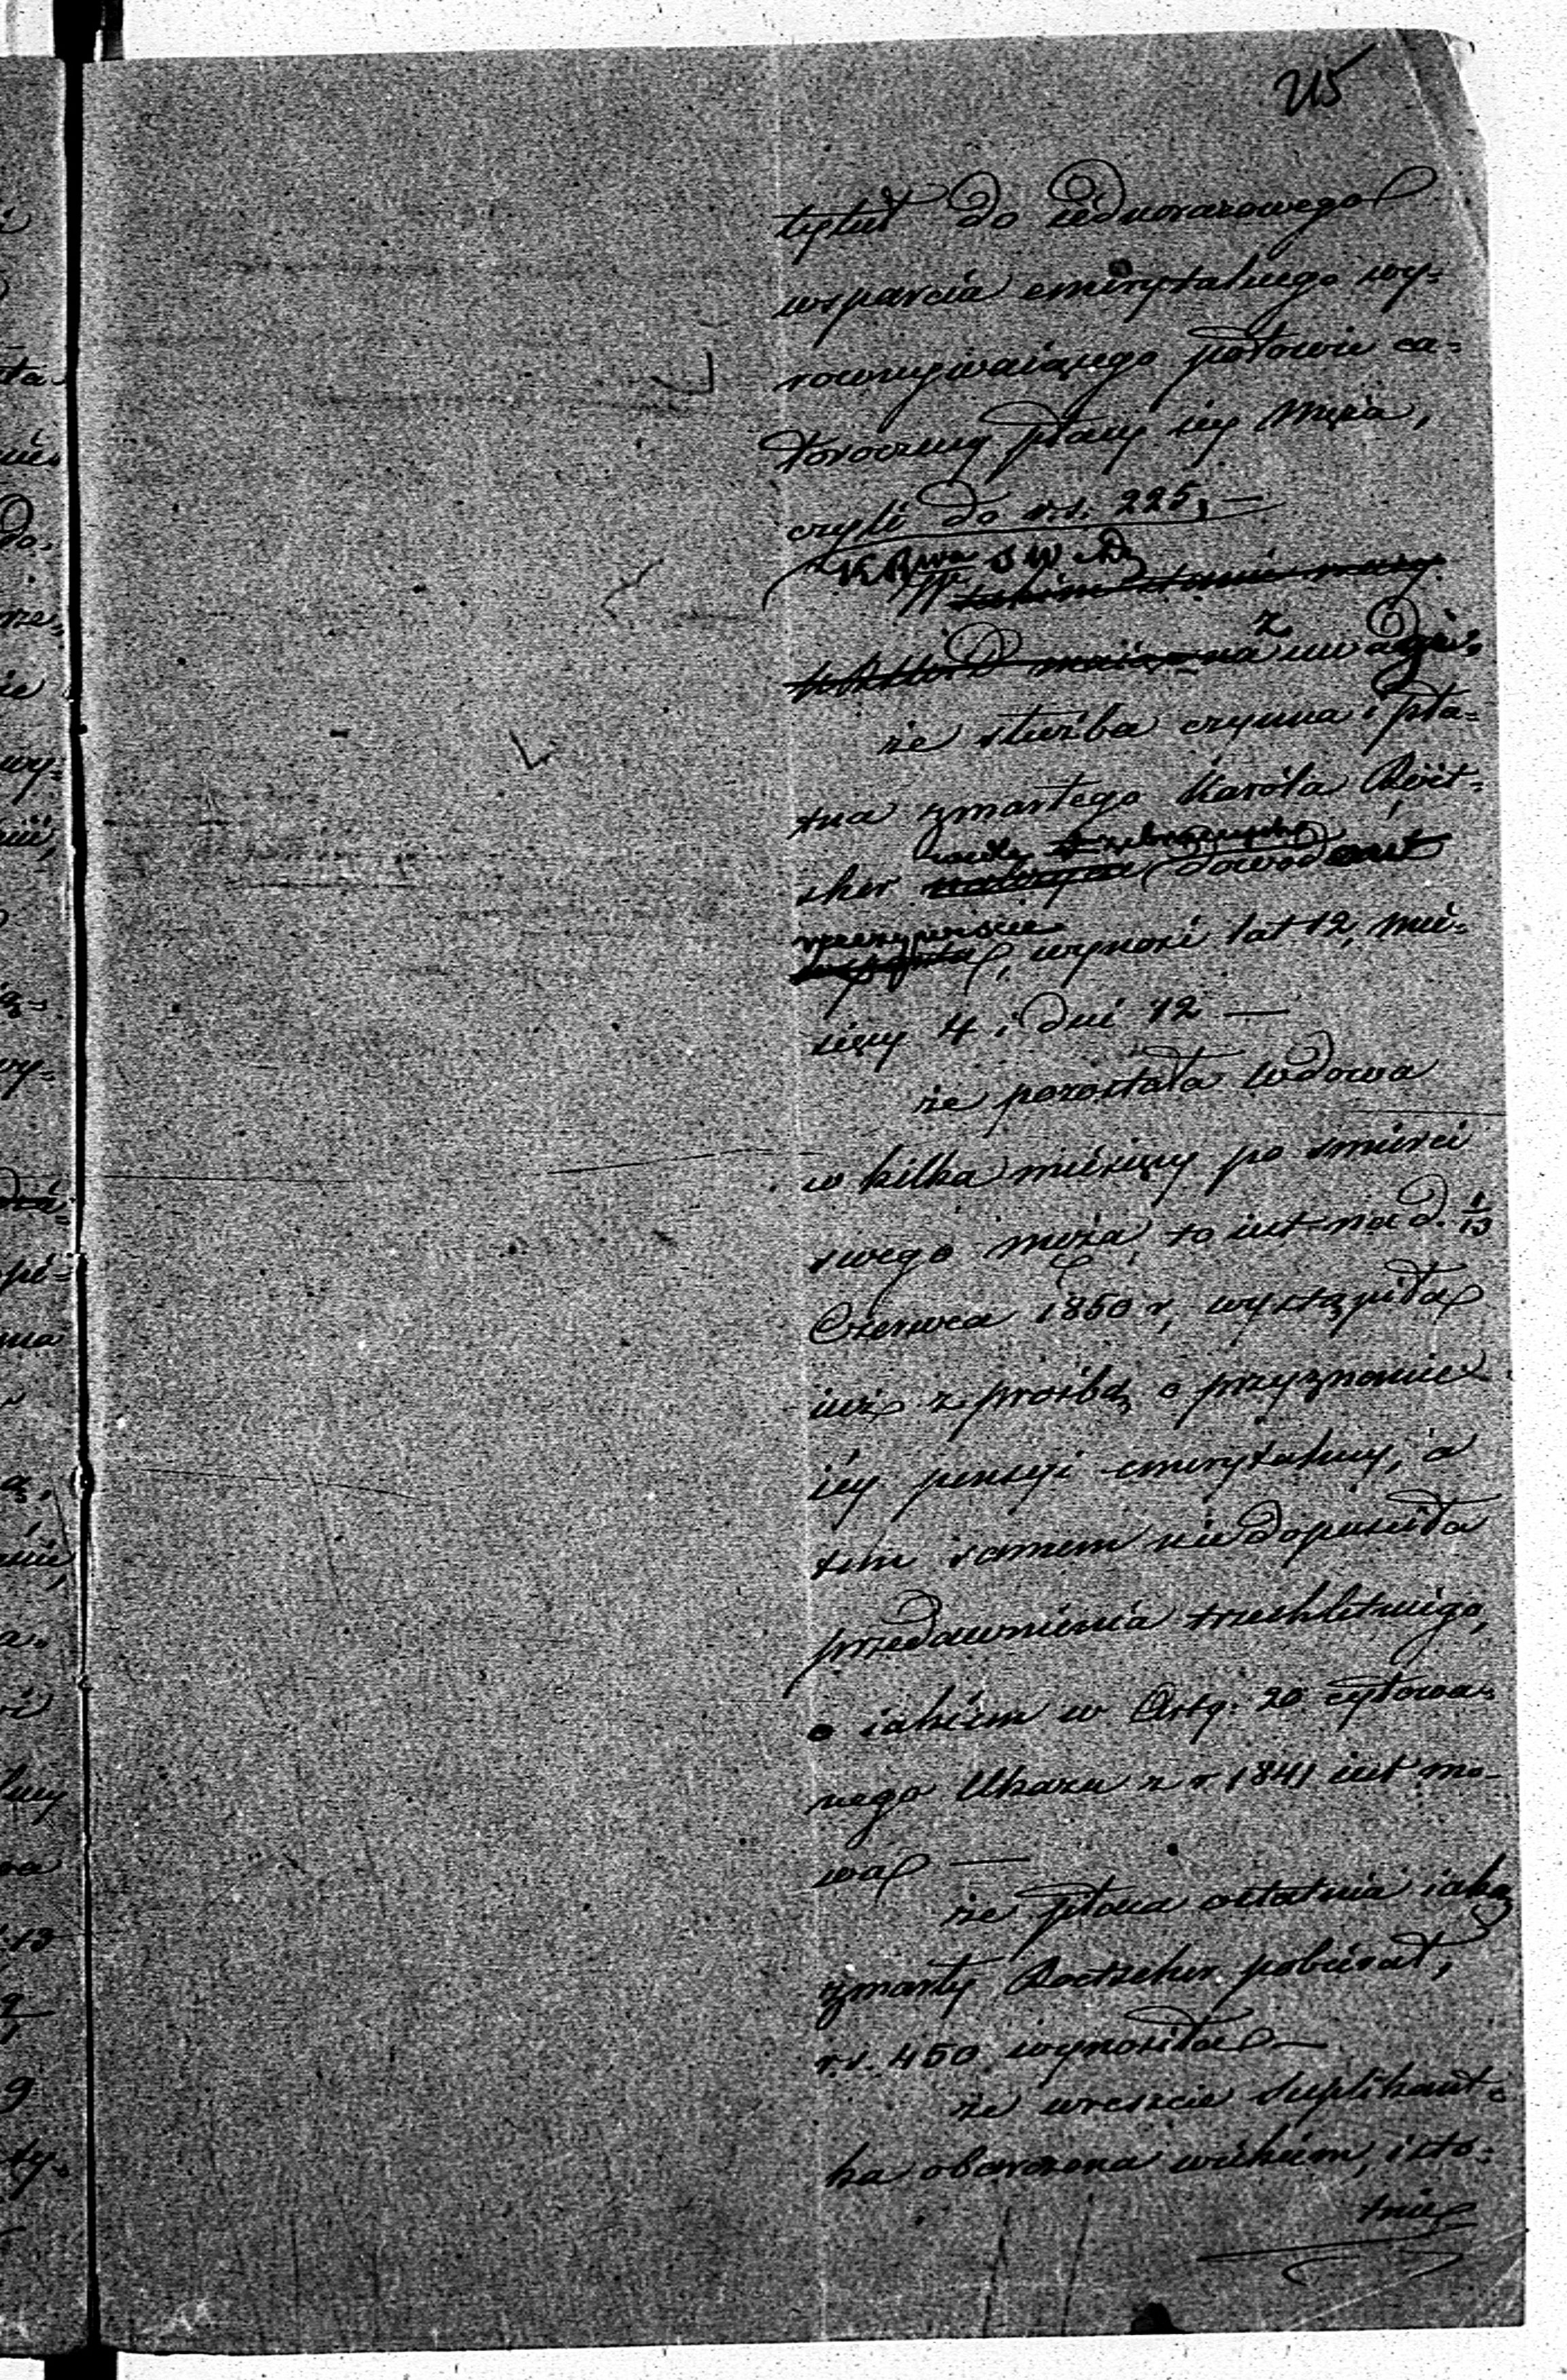 215
tytuł do iednorazowego
wsparcia emerytalnego wy-
rownywaiącego połowie ca-
łoroczney płacy iey Męża,
czyli do rs. 225, —
KRwa S W i D
W takim stanie rzeczy
z uwagi:
że służba czynna i pła-
tna zmarłego Karola Roet-
sher wedle dowodów
rzeczywiście, wynosi lat 12, mie-
sięcy 4 i dni 12 —
że pozostała wdowa
w kilka miesięcy po śmierci
swego męża, to iest na d. 1/13
Czerwca 1850 r, wystąpiła
iuż z prośbą o przyznanie
iey pensyi emerytalney, a
tem samem niedopuściła
przedawnienia trzechletniego,
o iakiém w Art: 20 cytowa-
nego Ukazu z r 1841 iest mo-
wa —
że płaca ostatnia iaką
zmarły Roetscher pobierał,
rs. 450 wynosiła —
że wreszcie Suplikant-
ka obarczona wiekiem, isto-
tnie